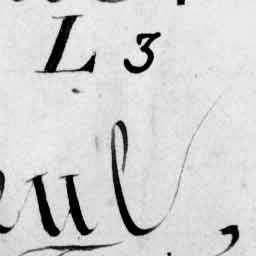 L 3
ul,